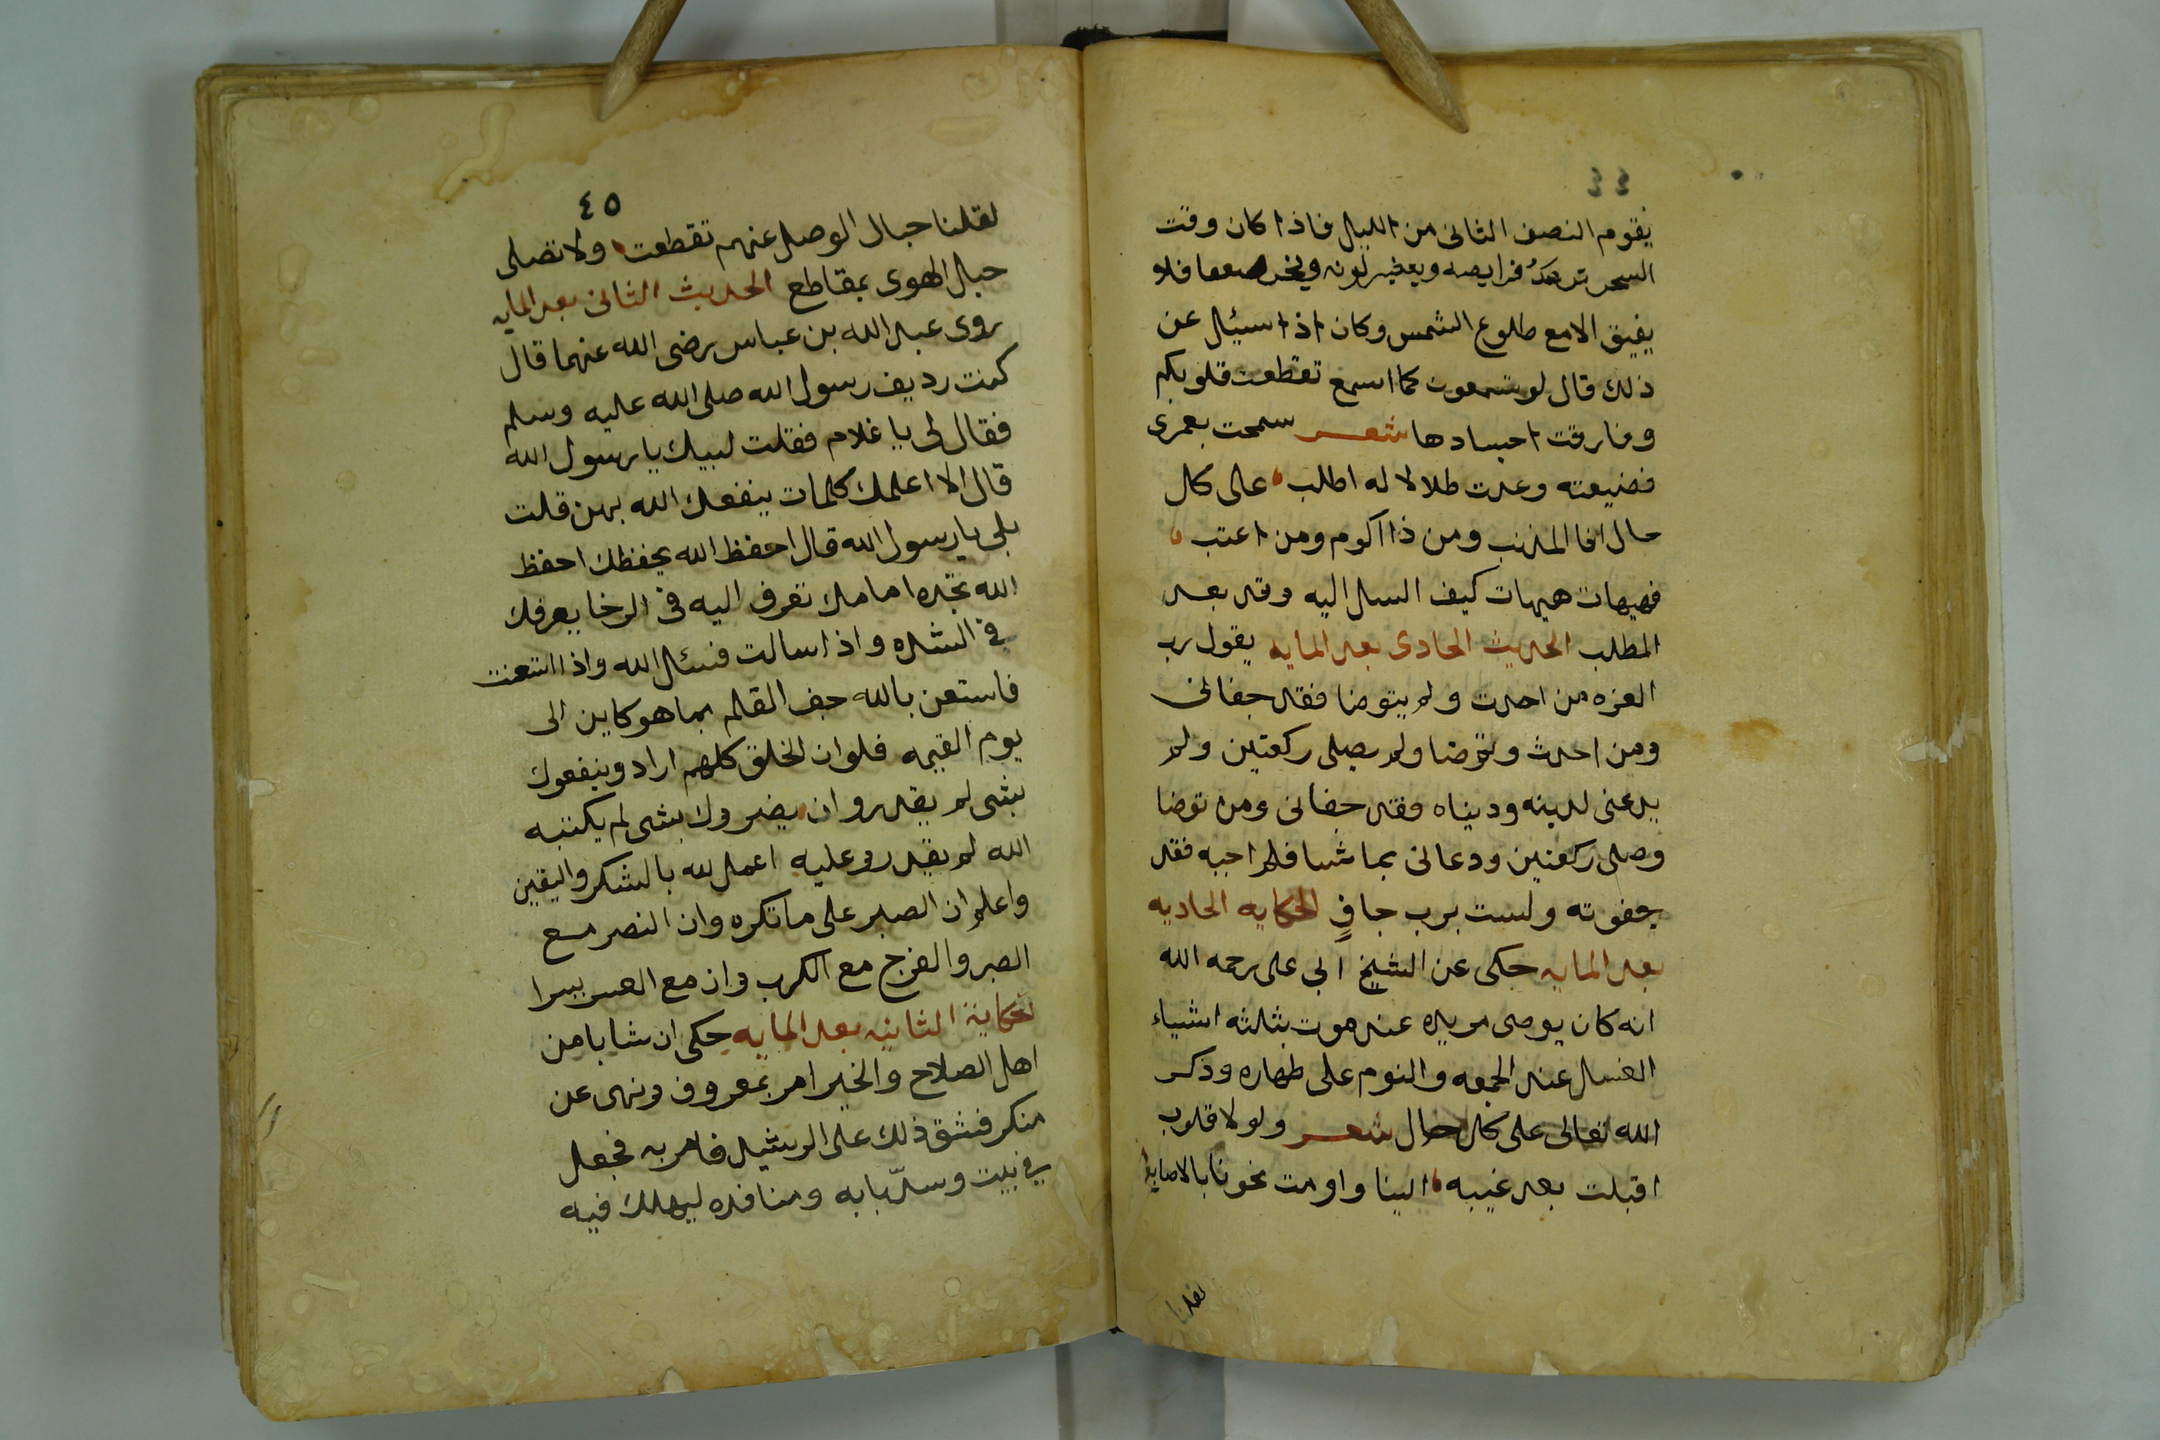 ٤٤
يقوم النصف الثانى من الليل فاذا كان وقت
السحر ترعد فرايصه ويعفير لونه ويخر صعقا فلا
يفيق الا مع طلوع الشمس وكان اذا سئيل عن
ذلك قال لو تسمعون كما اسمع تقطعت قلوبكم
وفارقت اجسادها شعر سمحت بعمرى
فضيعته وعدت طلالا له اطلب على كل
حال انا المذنب ومن ذا اكوم ومن اعتب
فهيهات هيهات كيف السبل اليه وقد بعد
المطلب الحديث الحادى بعد المايه يقول رب
العزه من احدث ولم يتوضا فقد جفانى
ومن احدث وتوضا ولم يصلى ركعتين ولم
يدعنى لدينه ودنياه فقد جفانى ومن توضا
وصلى ركعتين ودعانى بما شا فلم اجبه فقد
جفوته ولست برب جافٍ الحكايه الحاديه
بعد المايه حكى عن الشيخ ابى على رحمه الله
انه كان يوصى مريده عند موت بثلثه اشياء
الغسل عند الجمعه والنوم على طهاره وذكر
الله تعالى على كل حال شعر ولولا قلوب
اقبلت بعد غيبه الينا واومت نحونا بالاصابع
لقلنا
٤٥
لقلنا حبال الوصل عنهم تقطعت ولا تصلى
حبال الهوى بمقاطع الحديث الثانى بعد المايه
روى عبد الله بن عباس رضى الله عنهما قال
كنت رديف رسول الله صلى الله عليه وسلم
فقال لى يا غلام فقلت لبيك يا رسول الله
قال الا اعلمك كلمات ينفعك الله بهن قلت
بلى يا رسول الله قال احفظ الله يحفظك احفظ
الله تجده امامك تعرف اليه فى الرخا يعرفك
فى الشده واذا سالت فسئل الله واذا استعنت
فاستعن بالله جف القلم بما هو كاين الى
يوم القيمه فلو ان الخلق كلهم ارادو ينفعوك
بشى لم يقدرو ان يضروك بشى لم يكتبه
الله لم يقدرو عليه اعمل لله بالشكر واليقين
واعلم ان الصبر على ما تكره وان النصر مع
الصبر والفرج مع الكرب وان مع العسر يسرا
لحكاية الثانيه بعد المايه حكى ان شابا من
اهل الصلاح والخير امر بمعروف ونهى عن
منكر فشق ذلك على الرشيد فامر به فجعل
فى بيت وسدّ بابه ومنافذه ليهلك فيه